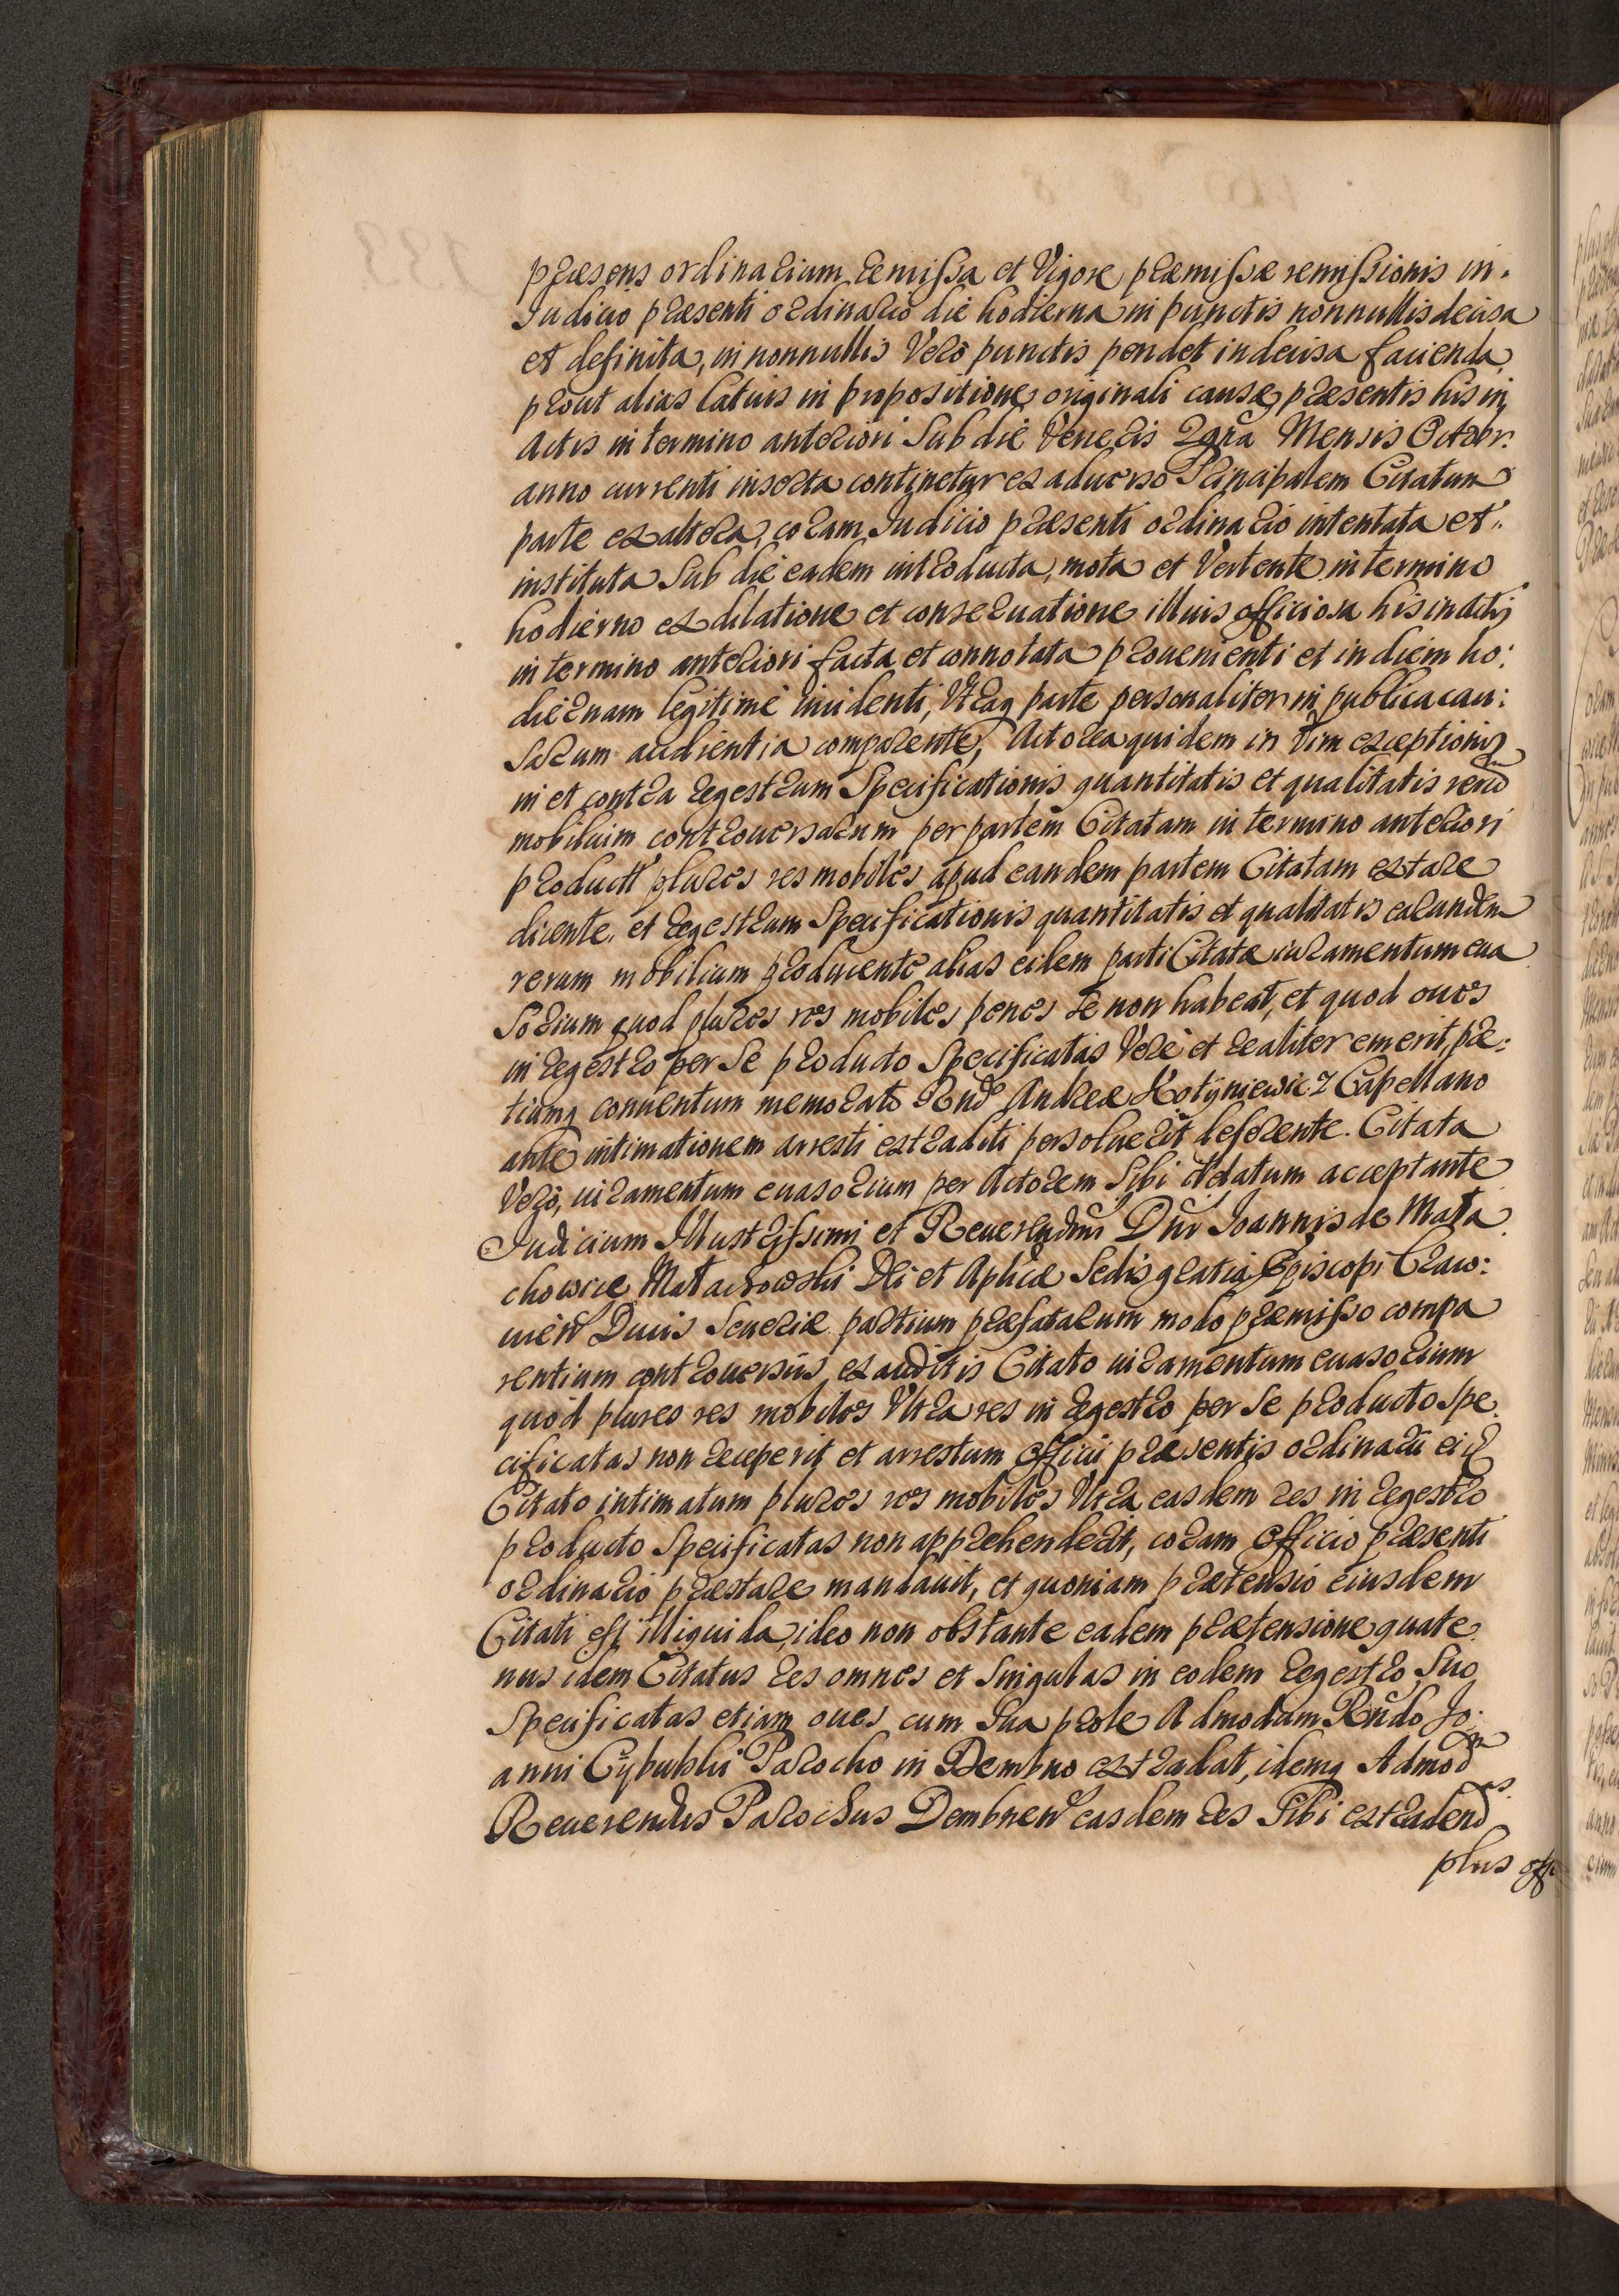 præsens ordinarium remissa et Vigore præmissæ remissionis in
Judicio præsenti ordinario die hodierna in punctis nonnullis decisa
et definita, in nonnullis Vero punctis pendet indecisa facienda
prout alias latius in propositione originali causæ præsentis his in
Actis in termino anteriori Sub die Veneris Mensis Octobr.
anno currenti inserta continetur ex adverso Principalem Citatum
parte ex altera, coram Judicio præsenti ordinario intentata et
instituta Sub die eadem introducta, mota et Vertente in termino
hodierno ex dilatione et conservatione illius officiosa his in actis
in termino anteriori facta et connotata provenienti et in diem ho:
diernam legitime incidenti, Utraq parte personaliter in publica cau:
sarum audientia comparente, Actorea quidem in Vim exceptionis
in et contra regestrum Specificationis quantitatis et qualitatis rerum
mobilium controversarum per partem Citatam in termino anteriori
product plures res mobiles apud eandem partem Citatam extare
dicente, et regestrum Specificationis quantitatis et qualitatis earundem
rerum mobilium producente alias eidem parti Citatæ iuramentum eua
Sorium quod plures res mobiles penes se non habeat, et quod oves
in regestro per Se producto Specificatas Vere et realiter emerit, pre:
tiumq conventum memorato Rndo Andreæ Kotyniewicz Capellano
ante intimationem arresti extraditi persolverit deferente. Citata
Vero, iuramentum euasorium per Actorem Sibi delatum acceptante
Judicium Illustrissimi et Reverendmi Dni Joannis de Mała
chowice Małachowski Dei et Aplicæ Sedis gratia Episcopi Craco:
vien Ducis Severiæ partium præfatarum modo præmisso compa
rentium controversiis exauditis Citato iuramentum euasorium
quod plures res mobiles Ultra res in regestro per Se producto Spe
cificatas non receperit et arrestum Officii præsentis ordinarii eid
Citato intimatum plures res mobiles Ultra easdem res in regestro
producto Specificatas non apprehenderit, coram Officio præsenti
ordinario præstare mandavit, et quoniam prætensio eiusdem
Citati est illiquida, ideo non obstante eadem prætensione quate
nus idem Citatus res omnes et Singulas in eodem regestro Suo
Specificatas etiam oves cum Sua prole Admodum Rndo Jo:
anni Cybulski Parocho in Dembno extradat, idemq Admodm
Reverendus Parochus Dembnen easdem res Sibi extradend
plus